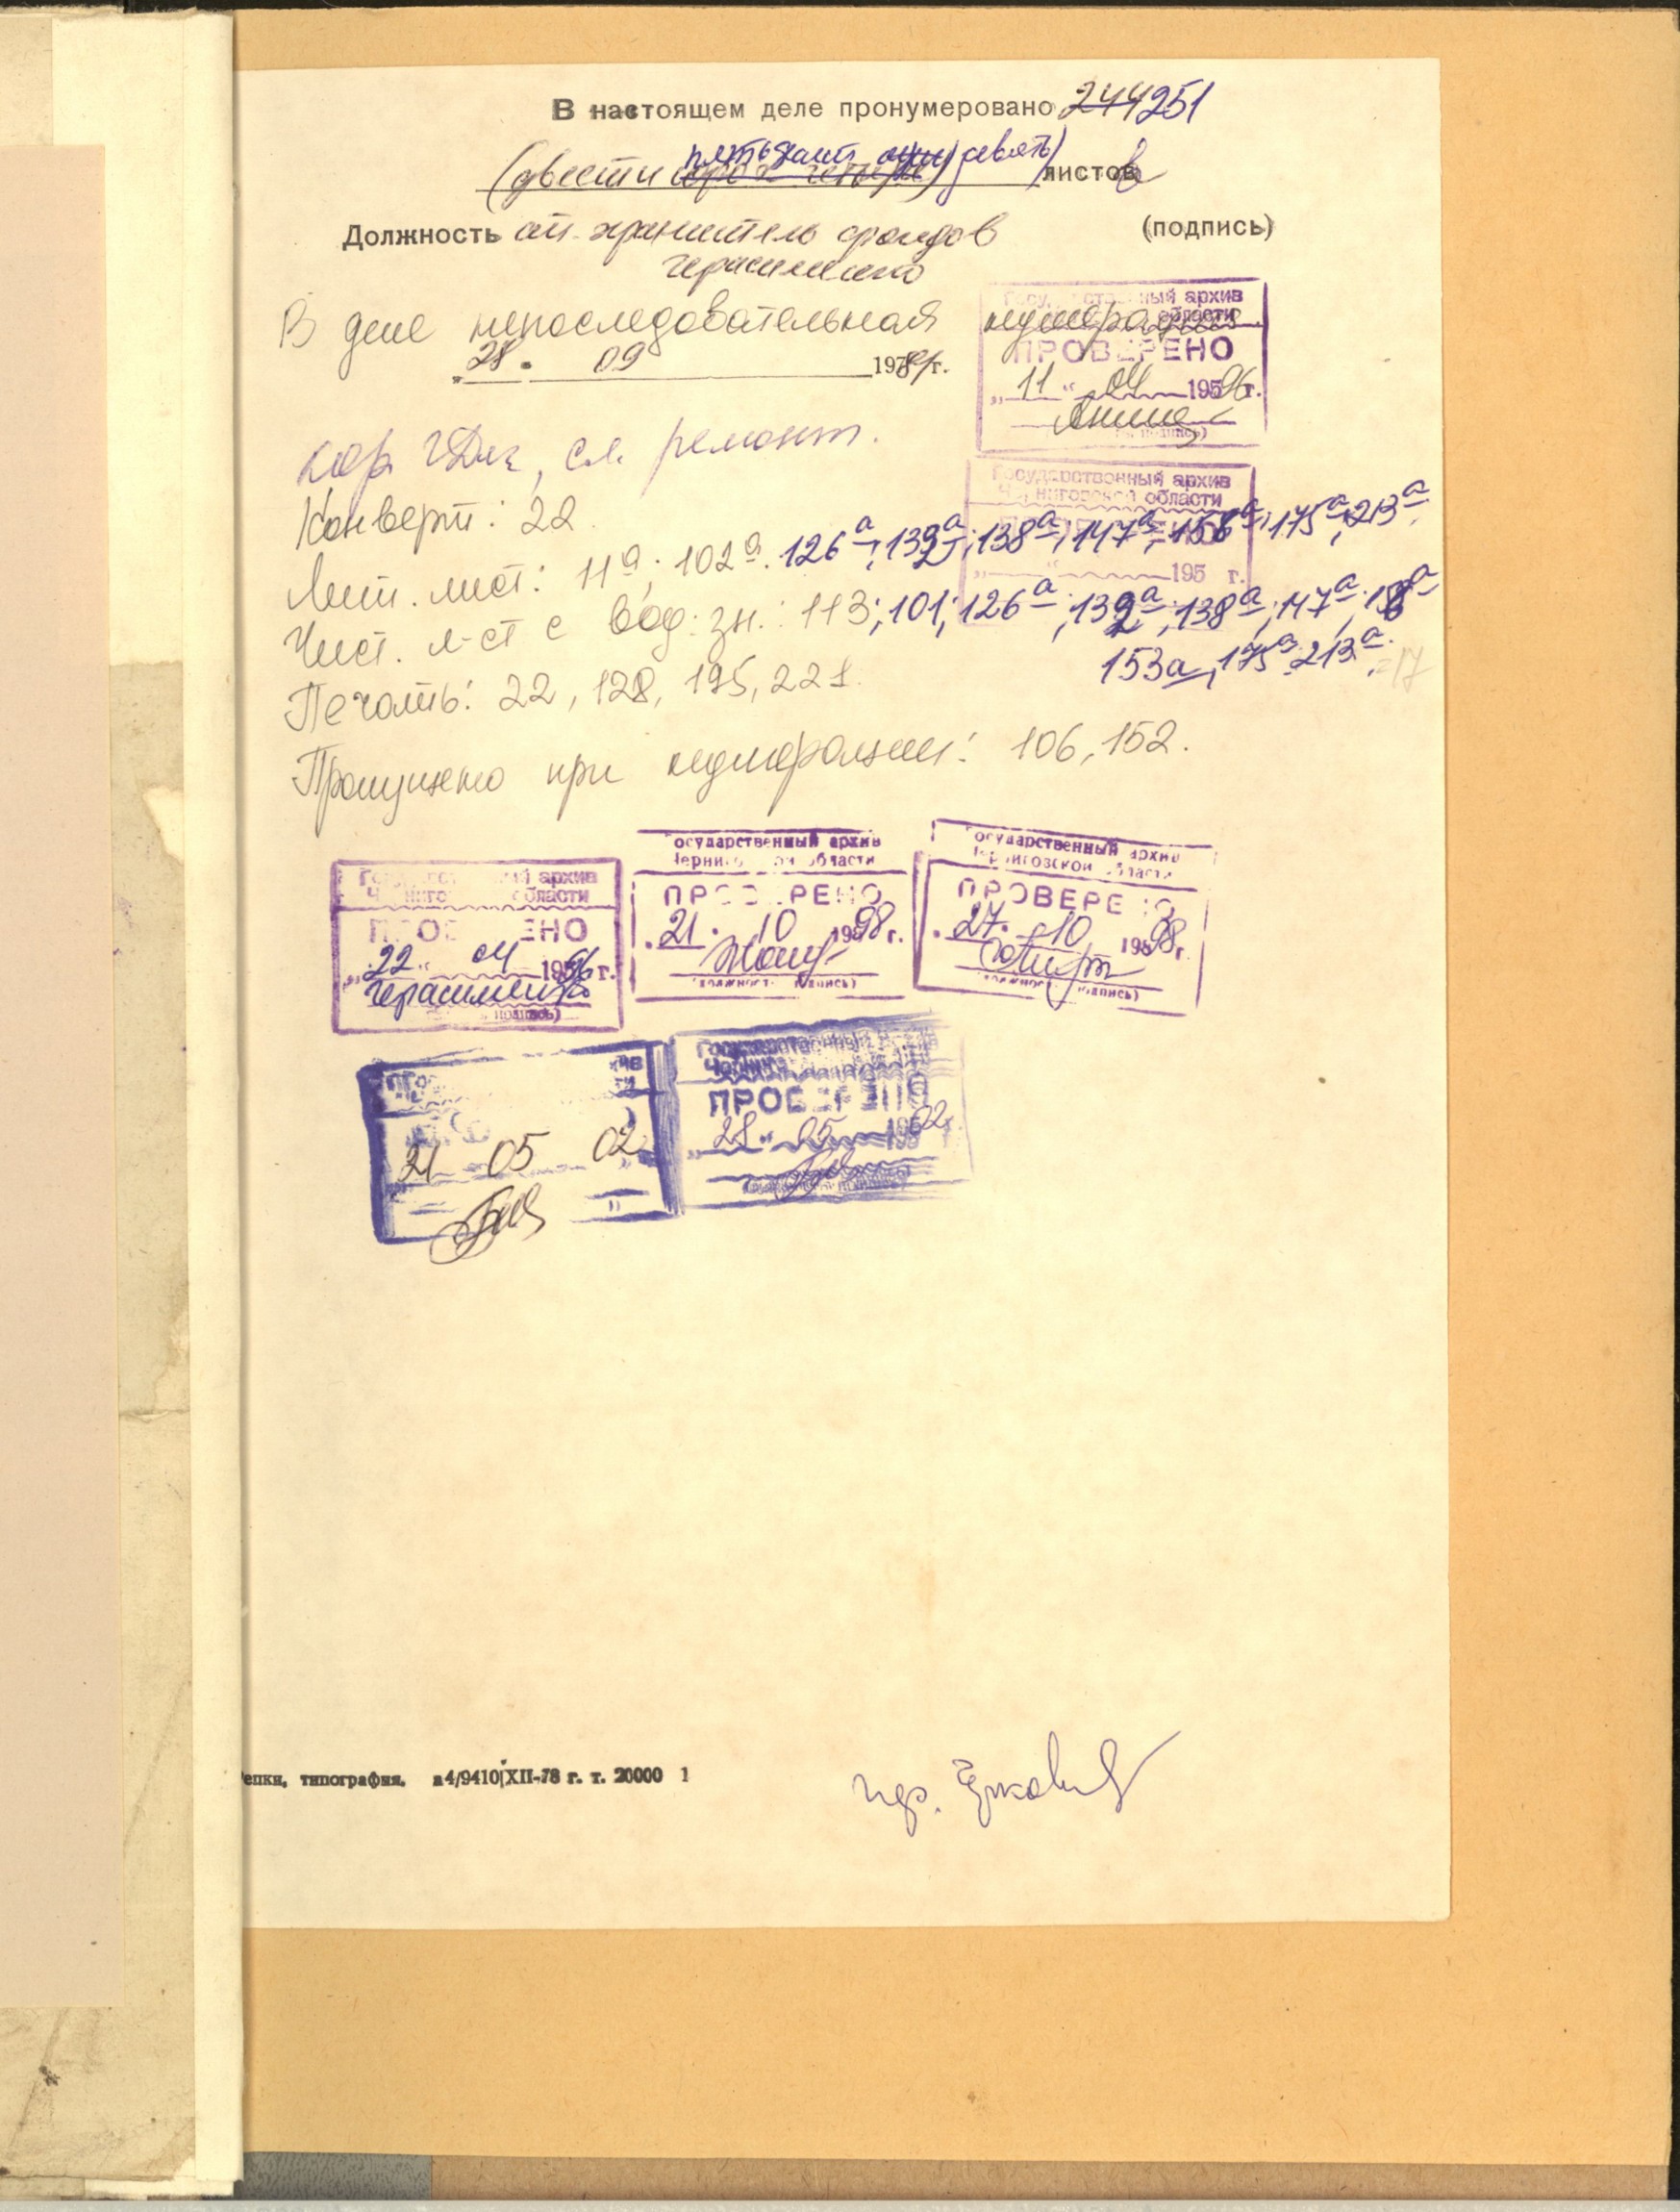 В настоящем деле пронумеровано 244 251
(двести пятьдесят один) девять) листов
Должность ст. хранитель фондов (подпись)
Герасименко
В деле непоследовательная нумерация
"28" 09 198 г.
Государственный архив
области
ПРОВЕРЕНО
"11" 04 1996 г.
кор. , сл. ремонт.
Конверт: 22.
Государственный архив
Черниговской области
Лит. лист: 11а; 102а. 126а; 132а; 138а; 147а; 158а; 175а; 213а.
195 г.
Чист. л-ст с вод. зн.: 113; 101; 126а; 132а; 138а; 147а; 158а
153а, 175а 213а. =17
Печать: 22, 128, 195, 221.
Пропущено при нумерации: 106, 152.
Государственный архив
Черниговской области
ПРОВЕРЕНО
"22" 04 1996 г.
Герасименко
подпись)
Государственный архив
Черниговской области
ПРОВЕРЕНО
"21" 10 1998 г.
(должность подпись)
Государственный архив
Черниговской области
ПРОВЕРЕНО
"27" 10 1998 г.
(должность подпись)
21 05 02
Государственный архив
ПРОВЕРЕНО
"28" 05 02 г.
епки, типография. з4/9410 XII-78 г. т. 20000 1